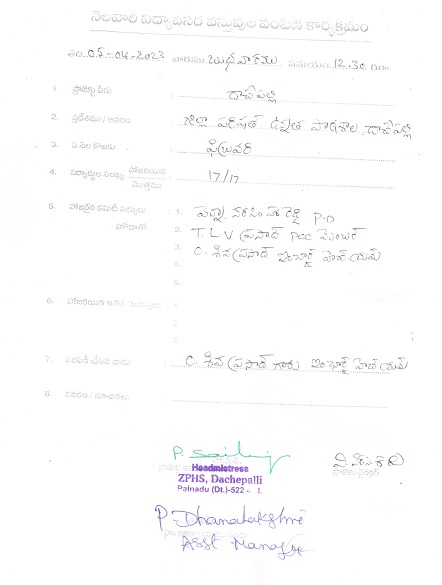 నెలవారి విద్యావసర వస్తువుల పంపిణి కార్యక్రమం
తేది 05-04-2023 వారము బుధవారము సమయం 12.30 గం॥
1. ప్రాజెక్టు పేరు దాచేపల్లి
2. ప్రదేశము / ఆవరణ జిల్లా పరిషత్ ఉన్నత పాఠశాల, దాచేపల్లి
3. ఏ నెల కొరకు ఫిబ్రవరి
4. విద్యార్థుల సంఖ్య హాజరయిన / మొత్తము 17/17
5. హాజరైన కమిటీ సభ్యులు 1. నరసింహారెడ్డి P.D
2. T.L.V ప్రసాద్ PCC మెంబర్
3. C. శివ ప్రసాద్ ఇంచార్జ్ హెచ్ యమ్
4.
5.
6. హాజరయిన ఇతర 1.
2.
3.
7. పంపిణి చేసిన వారు C. శివ ప్రసాద్ గారు ఇంచార్జ్ హెచ్ యమ్
8. వివరణ / సూచనలు
P. Sailaj
Headmistress
ZPHS, Dachepalli
Palnadu (Dt.)-522
ప్రాజెక్టు డైరెక్టర్
P. Dhanalakshmi
Asst Manager